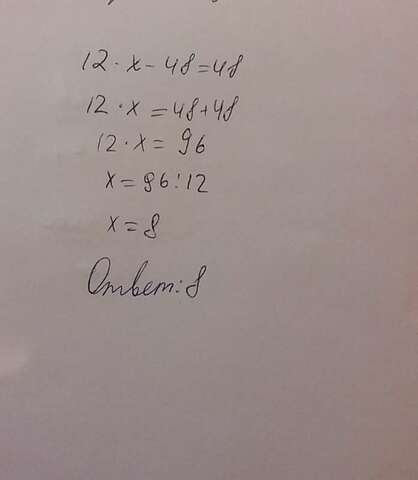 12 · x - 48 = 48
12 · x = 48 + 48
12 · x = 96
x = 96 : 12
x = 8
Ответ: 8